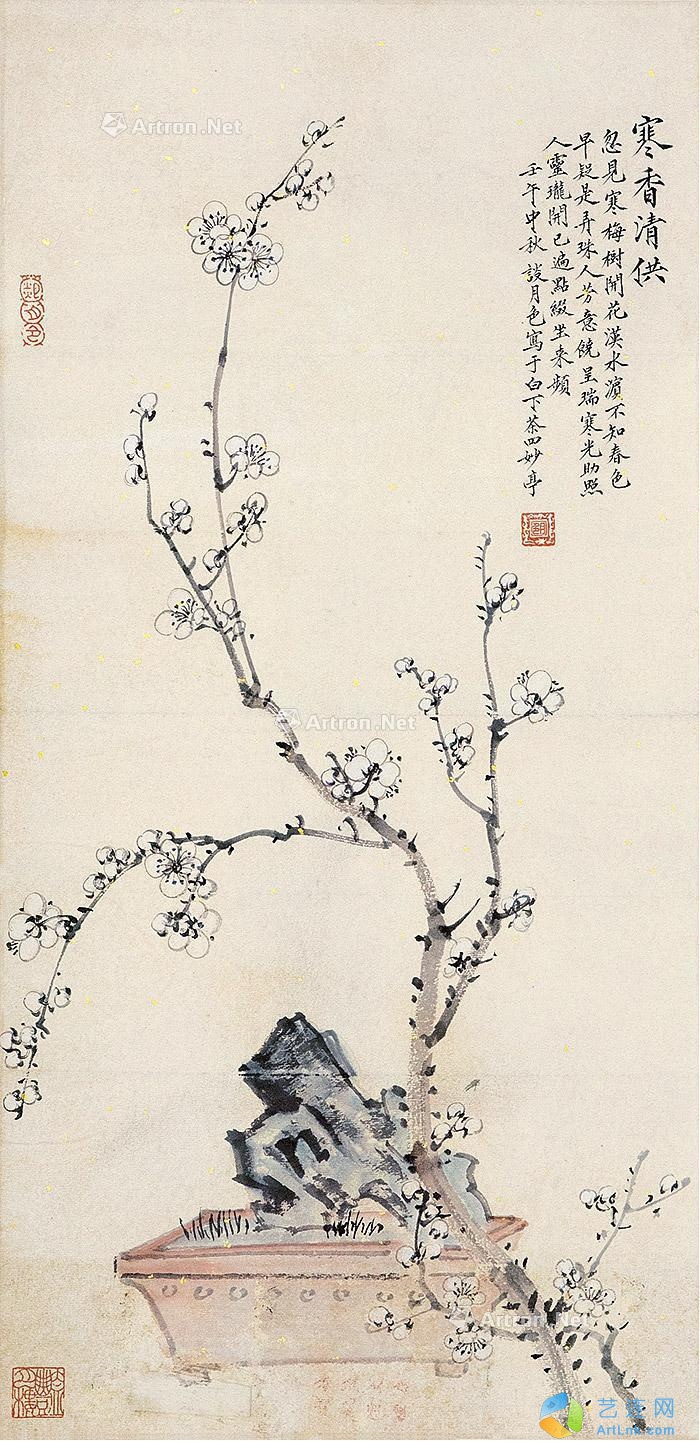 寒香清供
忽見寒梅樹開花漢水濱不知春色
早疑是弄珠人芳意饒呈瑞寒光助照
人靈瓏開已遍點綴坐来頻
壬午中秋談月色寫于白下茶四妙亭
Artron.Net
Artron.Net
Artron.Net
艺连网
ArtLnk.com